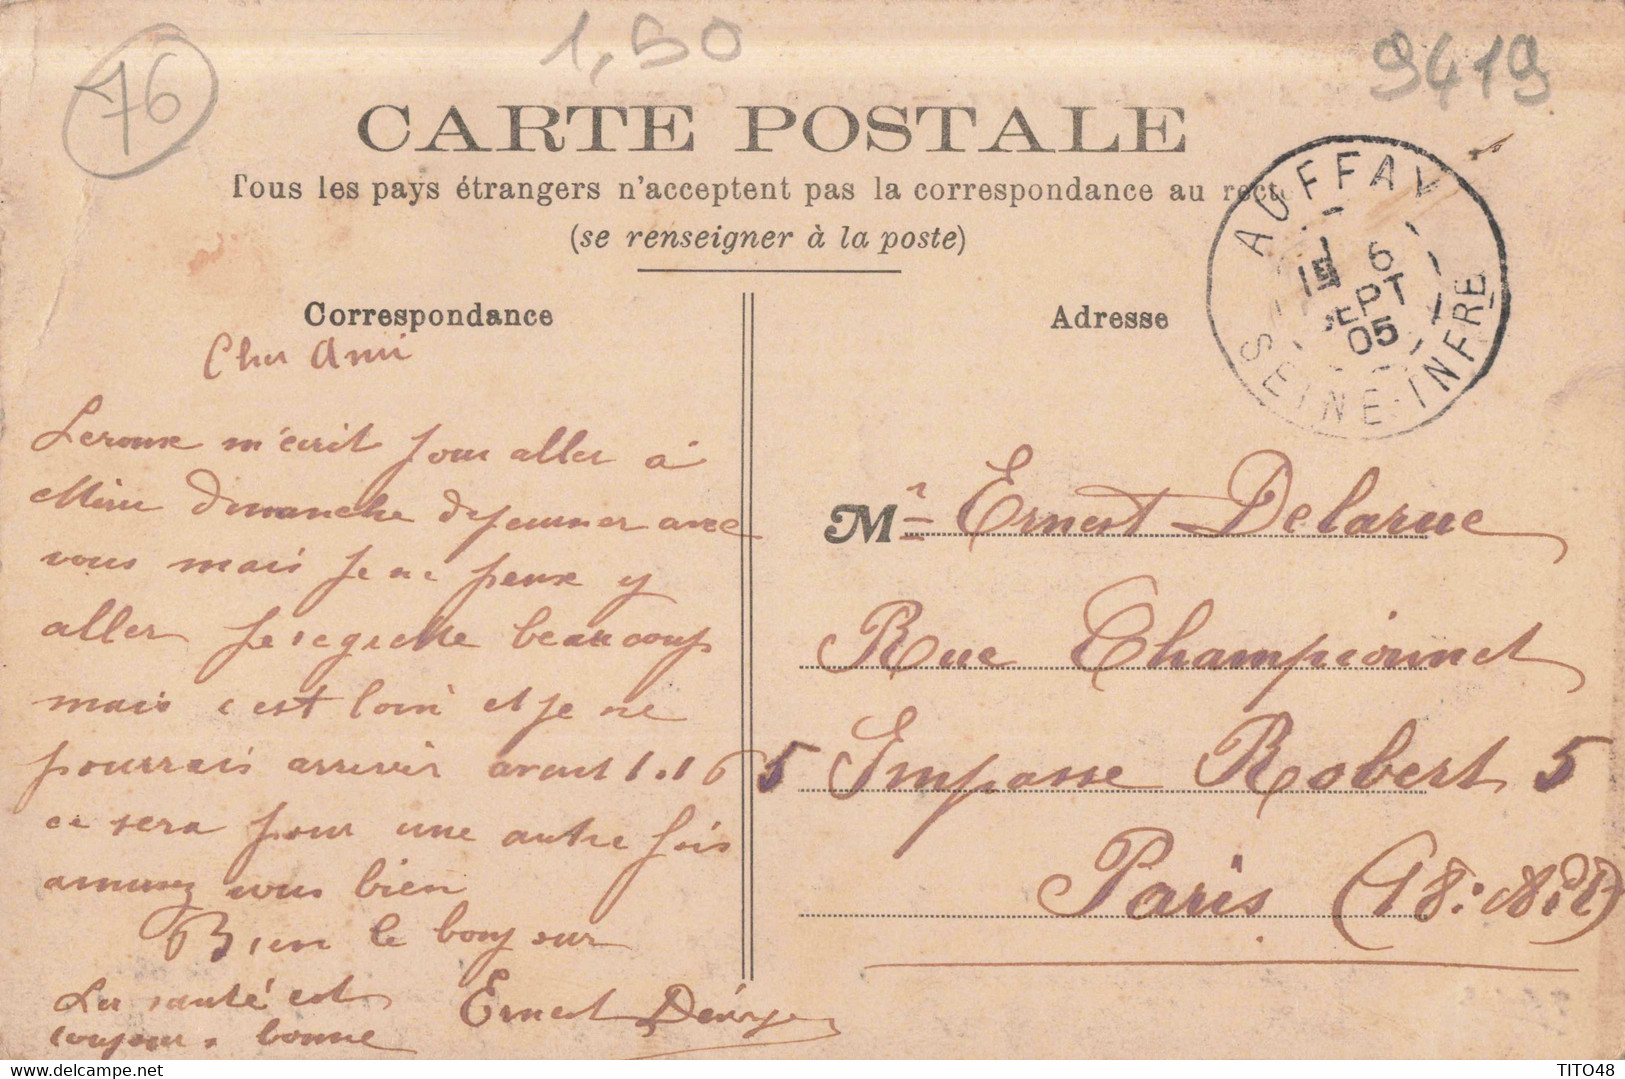 76
1,50
9419
CARTE POSTALE
Tous les pays étrangers n'acceptent pas la correspondance au recto
(se renseigner à la poste)
AUFFAY
6
SEPT
05
SEINE-INFRE
Correspondance
Adresse
Cher Ami
Leroux m'écrit pour aller à
dimanche dejeuner avec
vous mais je ne peux y
aller je regrette beaucoup
mais c'est loin et je ne
pourrais arriver avant 1.1
ce sera pour une autre fois
amusez vous bien
Bien le bonjour
La santé est
toujours bonne
Ernest
Mr Ernest Delarue
Rue Championnet
5 Impasse Robert 5
Paris (18e Ardt)
delcampe.net
TITO48